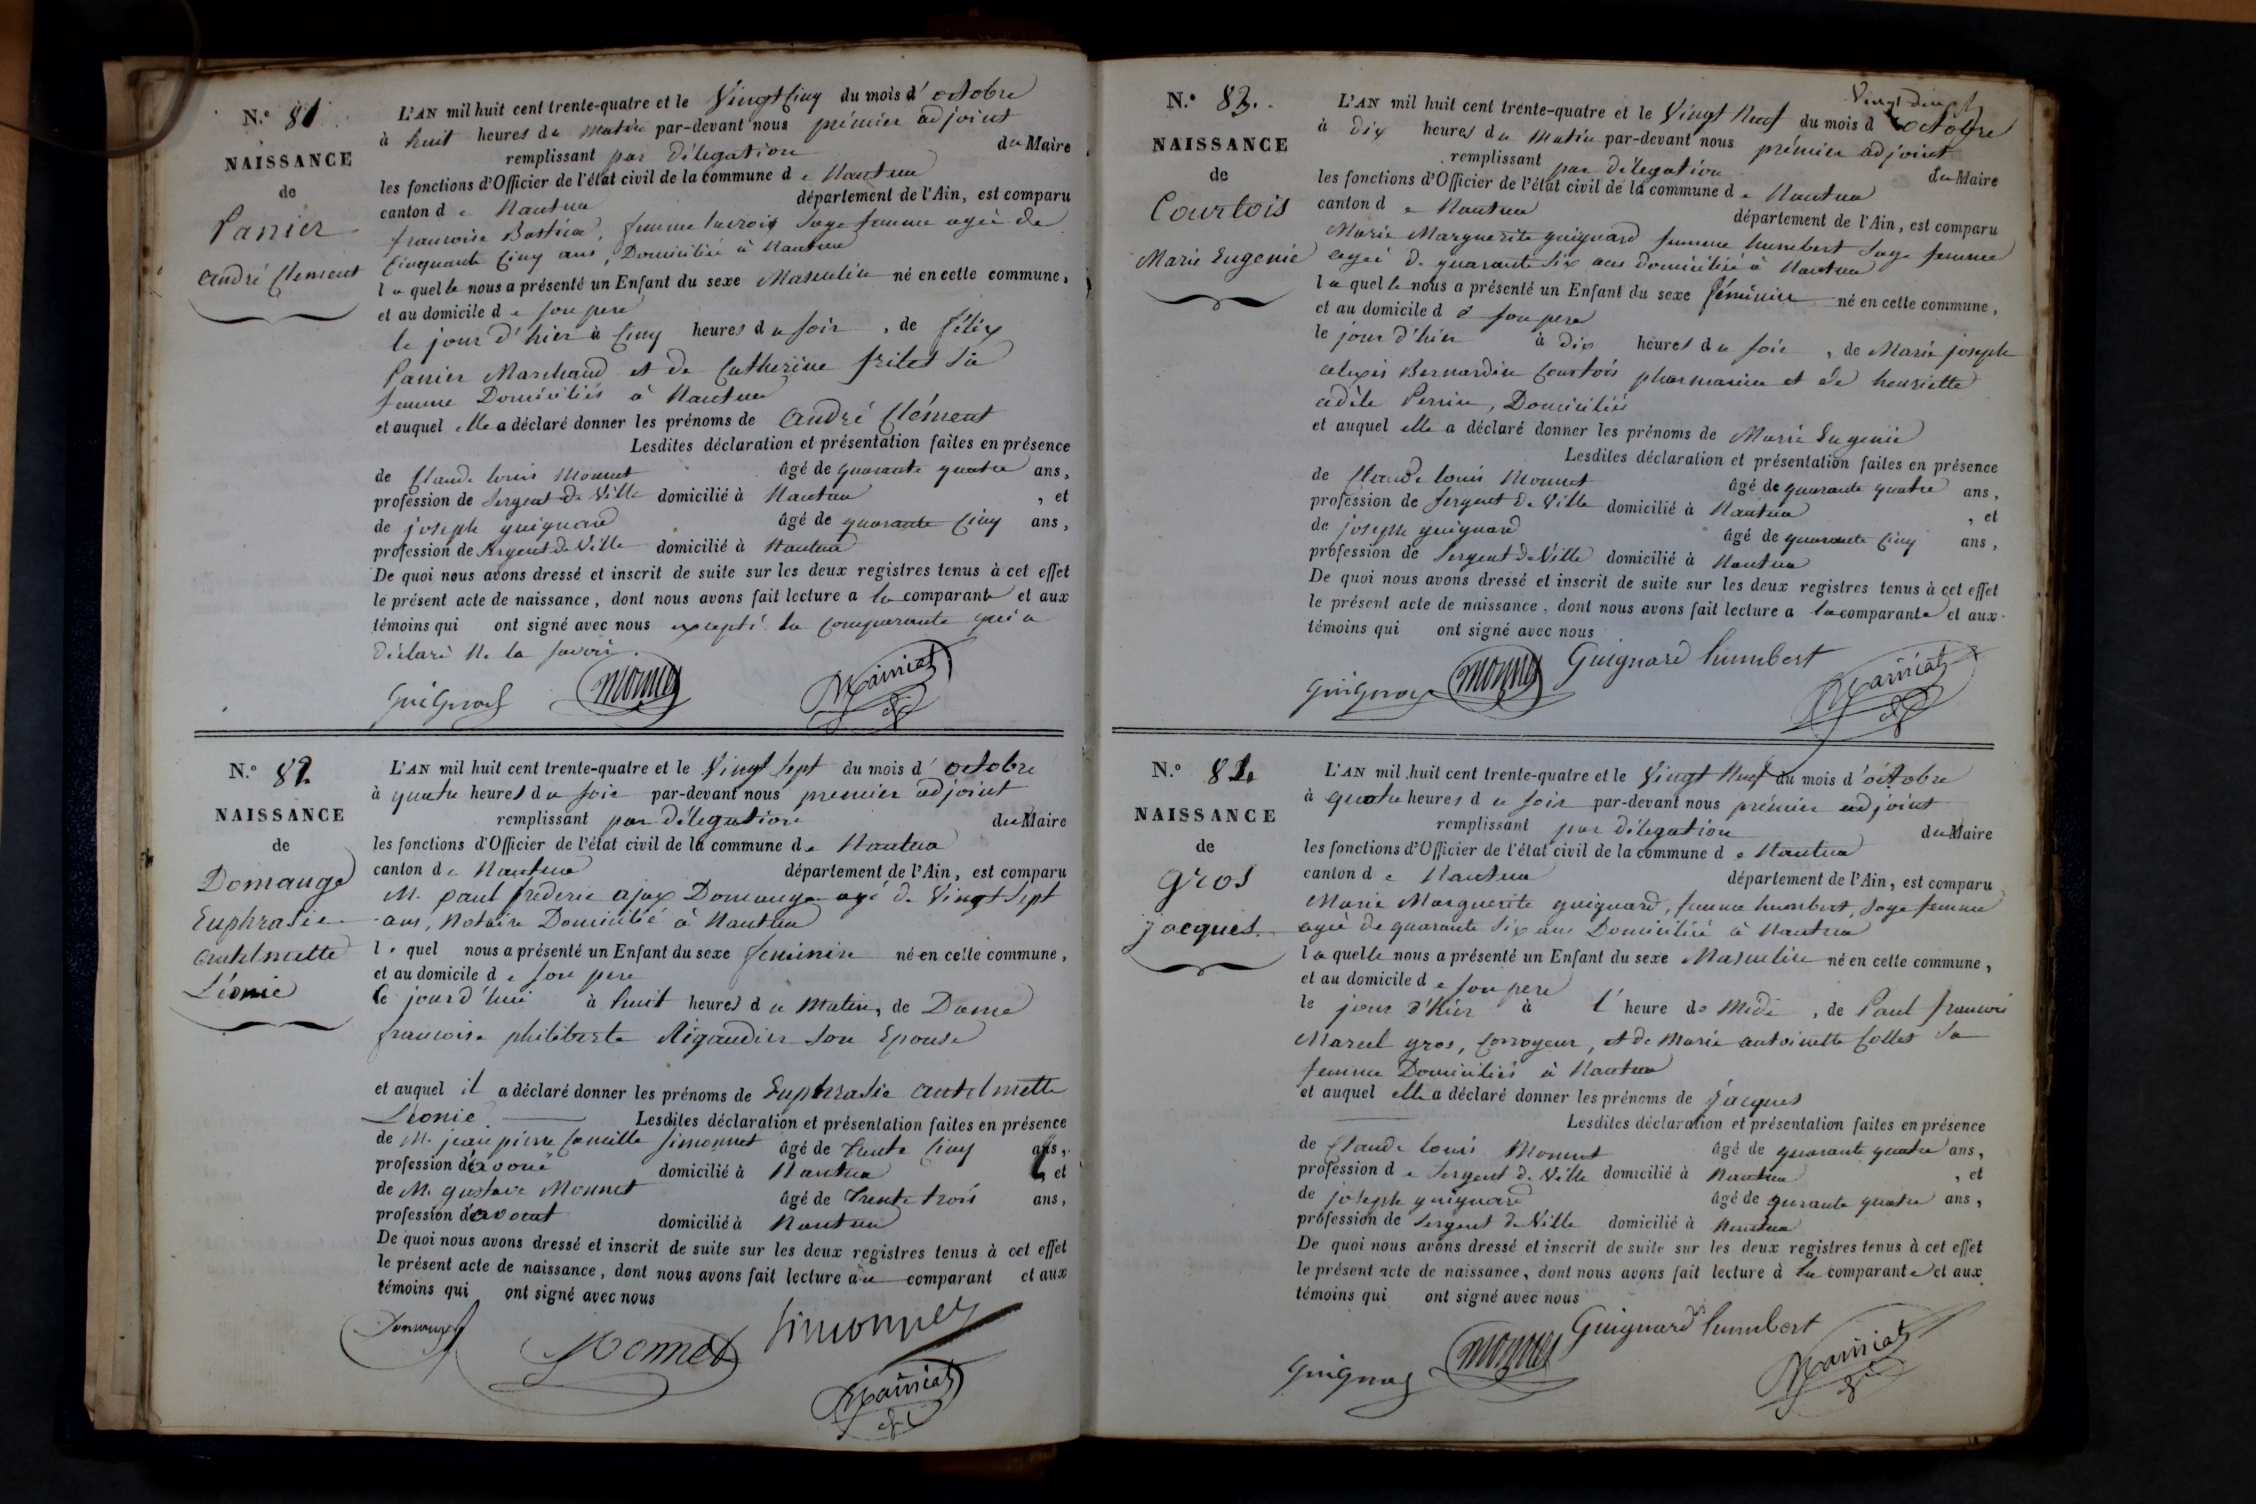 N.º 81
NAISSANCE
de
Panier
André Clement
L'AN mil huit cent trente-quatre et le Vingt Cinq du mois d'octobre
à huit heures du matin par-devant nous prémier adjoint
remplissant par délegation du Maire
les fonctions d'Officier de l'état civil de la commune de Nantua
canton de Nantua département de l'Ain, est comparu
francoise Bastian, femme lacroix Sage femme agée de
Cinquante Cinq ans, Domiciliée à Nantua
laquelle nous a présenté un Enfant du sexe Masculin né en cette commune,
et au domicile de son pere
le jour d'hier à Cinq heures du soir, de félix
Panier Marchand et de Catherine frilet sa
femme Domiciliés à Nantua
et auquel elle a déclaré donner les prénoms de André Clément
Lesdites déclaration et présentation faites en présence
de Claude louis Monnet âgé de quarante quatre ans,
profession de Sergent de Ville domicilié à Nantua, et
de joseph guignard âgé de quarante Cinq ans,
profession de Sergent de Ville domicilié à Nantua
De quoi nous avons dressé et inscrit de suite sur les deux registres tenus à cet effet
le présent acte de naissance, dont nous avons fait lecture a la comparante et aux
témoins qui ont signé avec nous excepté la comparante qui a
déclaré Ne la savoir.
Guignard Monnet
N.º 82
NAISSANCE
de
Domange
Euphrasie
Antelmette
Léonie
L'AN mil huit cent trente-quatre et le Vingt Sept du mois d'octobre
à quatre heures du soir par-devant nous premier adjoint
remplissant par délegation du Maire
les fonctions d'Officier de l'état civil de la commune de Nantua
canton de Nantua département de l'Ain, est comparu
M. paul fréderic ajax Domange agé de Vingt Sept
ans, Notaire Domicilié à Nantua
lequel nous a présenté un Enfant du sexe feminin né en cette commune,
et au domicile de son pere
le jourd'hui à huit heures du Matin, de Dame
francoise philiberte Rigaudier son Epouse
et auquel il a déclaré donner les prénoms de Euphrasie antelmette
Léonie. Lesdites déclaration et présentation faites en présence
de M. jean pierre Camille simonnet âgé de trente Cinq ans,
profession d'avoué domicilié à Nantua, et
de M. gustave Monnet âgé de trente trois ans,
profession d'avocat domicilié à Nantua
De quoi nous avons dressé et inscrit de suite sur les deux registres tenus à cet effet
le présent acte de naissance, dont nous avons fait lecture au comparant et aux
témoins qui ont signé avec nous
Domange Monnet Simonnet
N.º 83.
NAISSANCE
de
Courtois
Marie Eugenie
L'AN mil huit cent trente-quatre et le Vingt Neuf du mois d'octobre
à dix heures du Matin par-devant nous prémier adjoint
remplissant par délegation du Maire
les fonctions d'Officier de l'état civil de la commune de Nantua
canton de Nantua département de l'Ain, est comparu
Marie Marguerite guignard femme humbert Sage femme
agée de quarante Six ans domiciliée à Nantua
laquelle nous a présenté un Enfant du sexe féminin né en cette commune,
et au domicile de son pere
le jour d'hier à dix heures du soir, de Marie joseph
alexis Bernardin Courtois pharmacien et de henriette
adèle Perrin, Domiciliés
et auquel elle a déclaré donner les prénoms de Marie Eugenie
Lesdites déclaration et présentation faites en présence
de Claude louis Monnet âgé de quarante quatre ans,
profession de Sergent de Ville domicilié à Nantua, et
de joseph guignard âgé de quarante Cinq ans,
profession de Sergent de Ville domicilié à Nantua
De quoi nous avons dressé et inscrit de suite sur les deux registres tenus à cet effet
le présent acte de naissance, dont nous avons fait lecture a la comparante et aux
témoins qui ont signé avec nous
Guignard Monnet Guignard humbert
N.º 84
NAISSANCE
de
gros
jacques
L'AN mil huit cent trente-quatre et le Vingt Neuf du mois d'octobre
à quatre heures du soir par-devant nous prémier adjoint
remplissant par délegation du Maire
les fonctions d'Officier de l'état civil de la commune de Nantua
canton de Nantua département de l'Ain, est comparu
Marie Marguerite guignard, femme humbert, Sage femme
agée de quarante Six ans Domiciliée à Nantua
laquelle nous a présenté un Enfant du sexe Masculin né en cette commune,
et au domicile de son pere
le jour d'hier à l'heure de Midi, de Paul francois
Marcel gros, Corroyeur, et de Marie antoinette Collet Sa
femme Domiciliés à Nantua
et auquel elle a déclaré donner les prénoms de jacques
Lesdites déclaration et présentation faites en présence
de Claude louis Monnet âgé de quarante quatre ans,
profession de Sergent de Ville domicilié à Nantua, et
de joseph guignard âgé de qurante quatre ans,
profession de Sergent de Ville domicilié à Nantua
De quoi nous avons dressé et inscrit de suite sur les deux registres tenus à cet effet
le présent acte de naissance, dont nous avons fait lecture à la comparante et aux
témoins qui ont signé avec nous
Guignard Monnet Guignard humbert